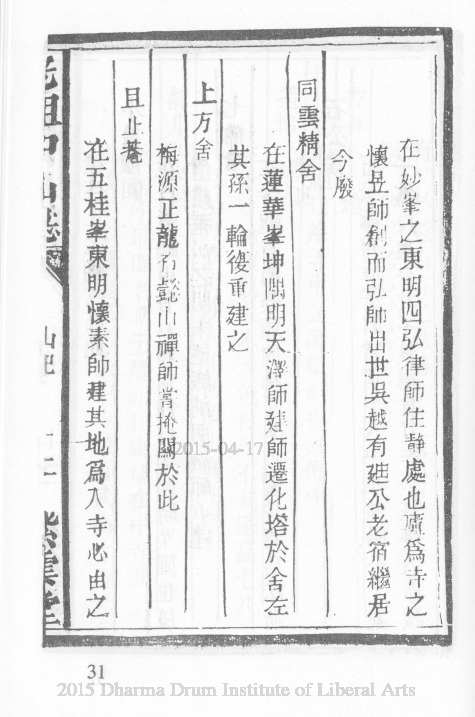 在妙峯之東明四弘律師住靜處也廬爲寺之
懷昱師創而弘師出世吳越有
公老宿繼居
今廢
同雲精舍
在蓮華峯坤隅明天澤師建師遷化塔於舍左
其孫一輪復重建之
上方舍
梅源正龍
山禪師嘗掩關於此
且止菴
在五桂峯東明懷素師建其地爲入寺必由之
山
紫雲堂
31
2015-04-17
2015 Dharma Drum Institute of Liberal Arts